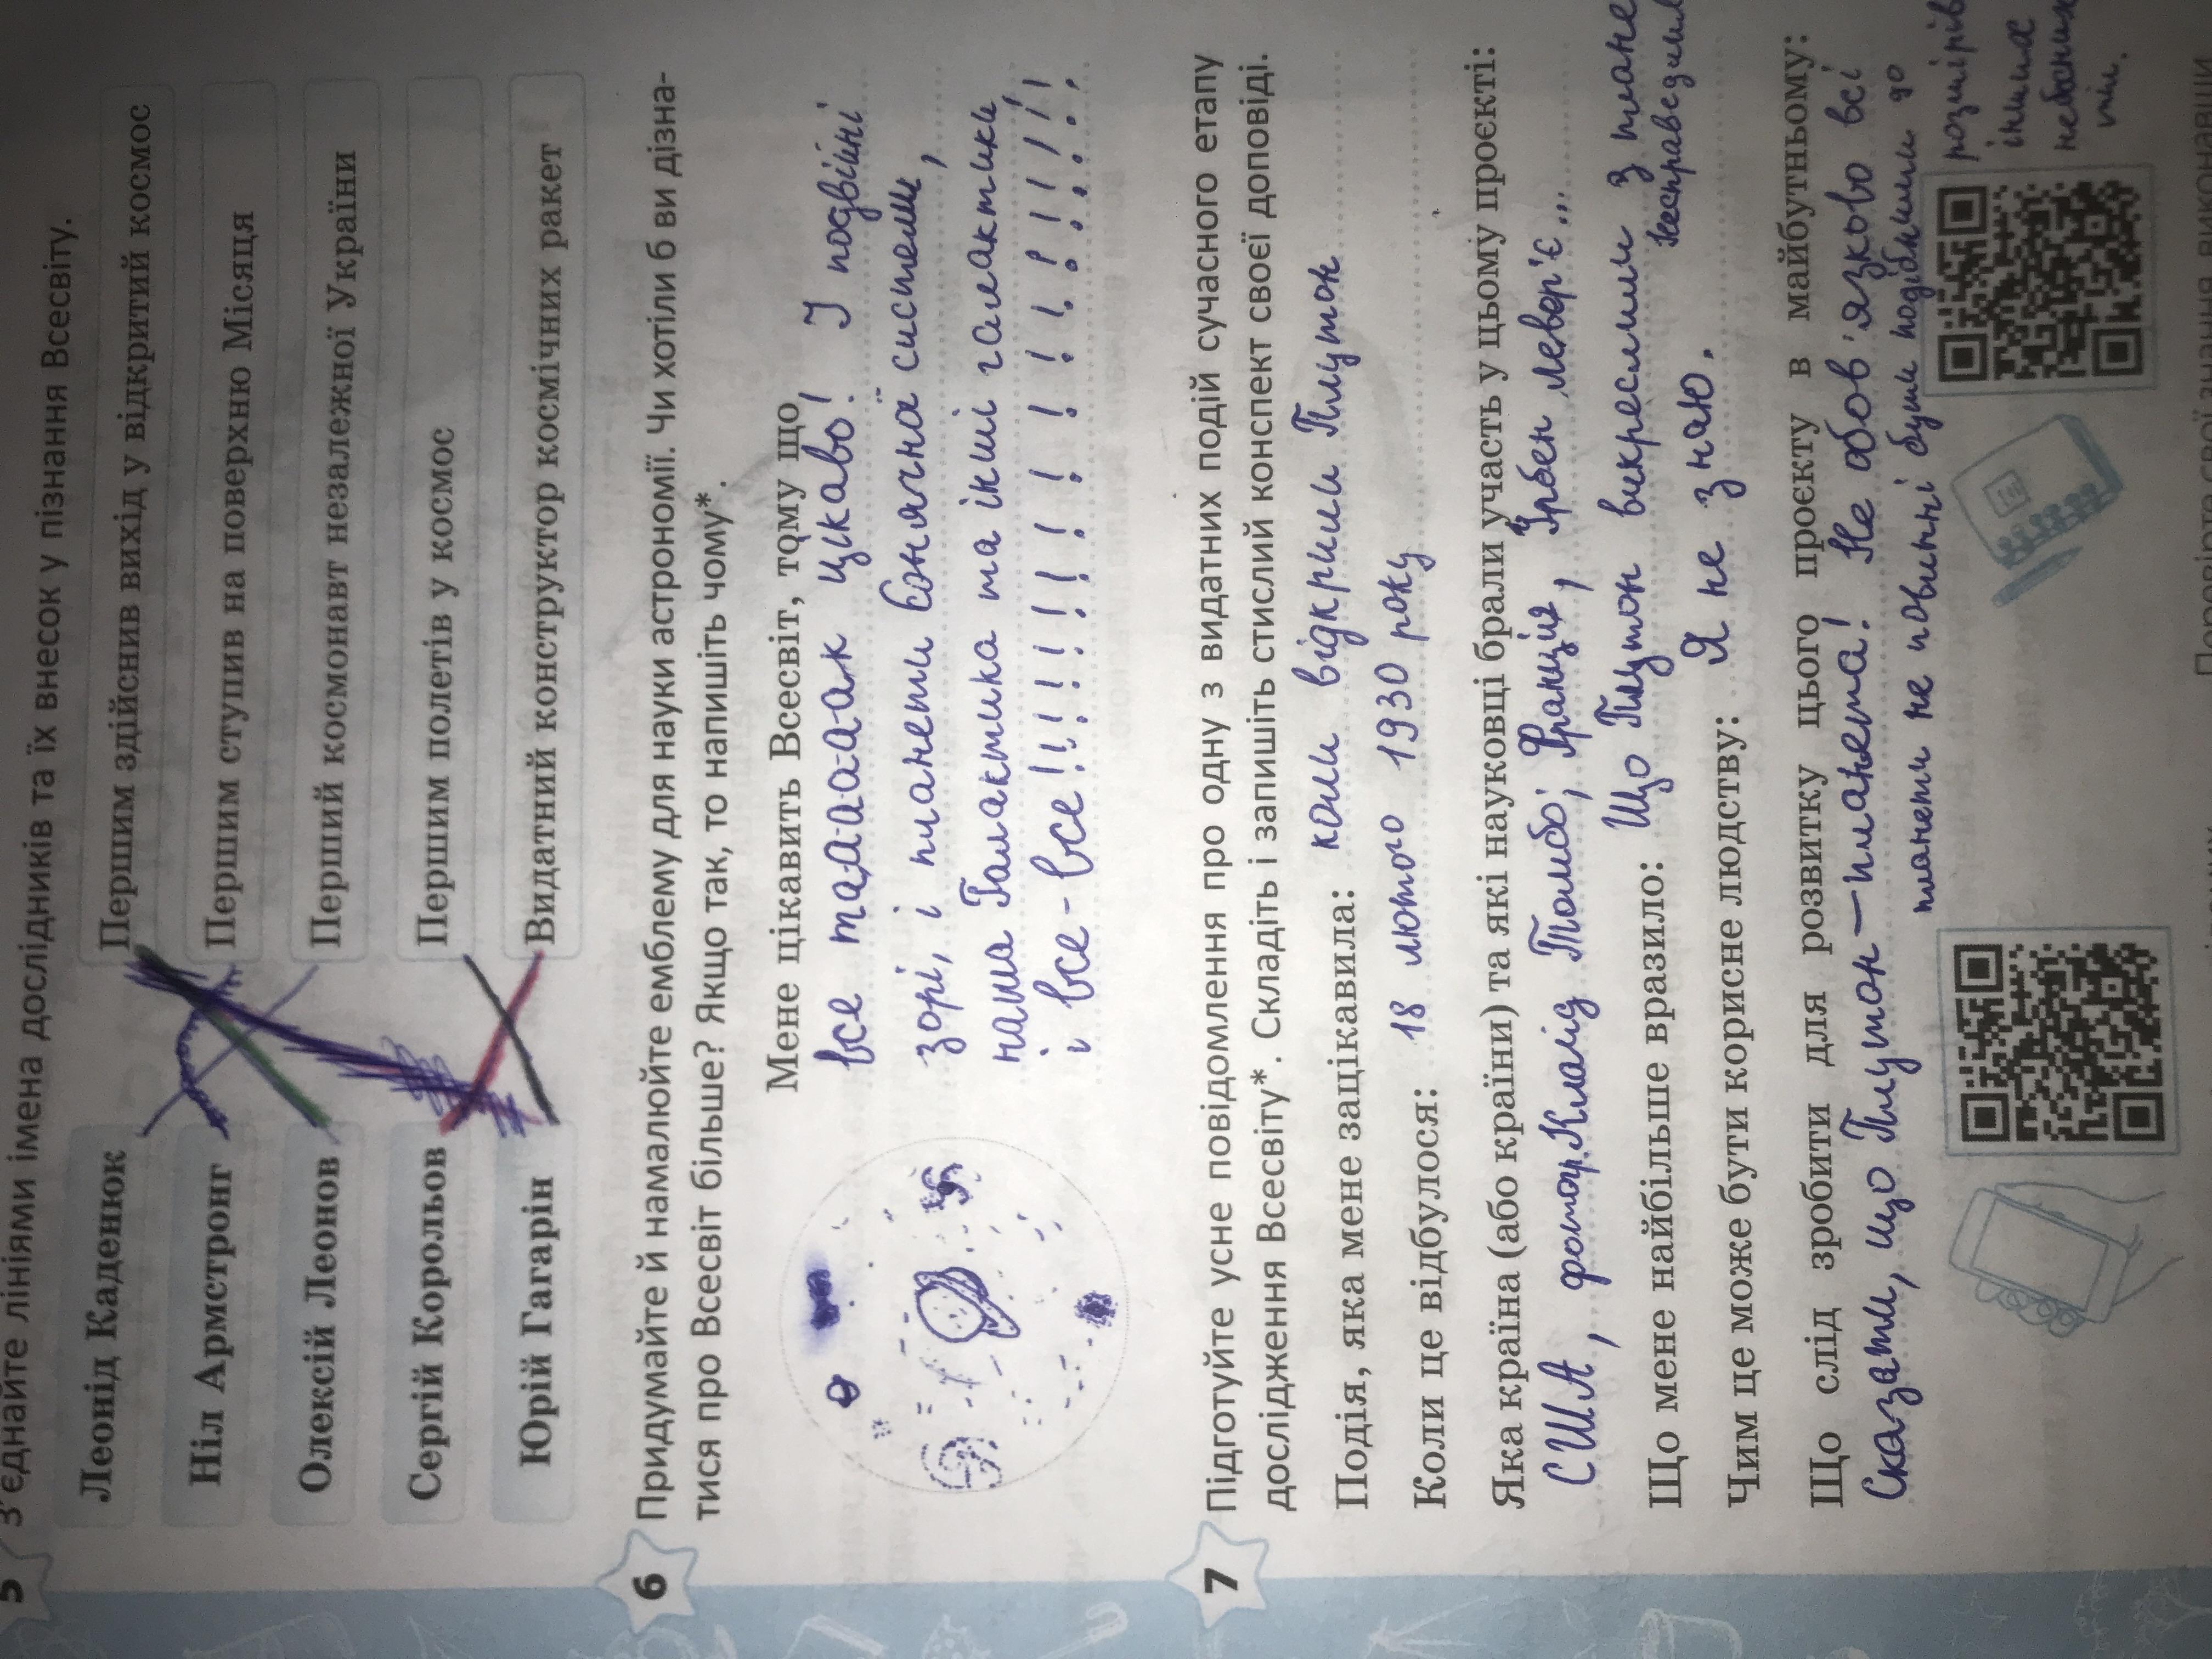 5 З'єднайте лініями імена дослідників та їх внесок у пізнання Всесвіту.
Леонід Каденюк
Першим здійснив вихід у відкритий космос
Ніл Армстронг
Першим ступив на поверхню Місяця
Олексій Леонов
Перший космонавт незалежної України
Сергій Корольов
Першим полетів у космос
Юрій Гагарін
Видатний конструктор космічних ракет
6 Придумайте й намалюйте емблему для науки астрономії. Чи хотіли б ви дізна-
тися про Всесвіт більше? Якщо так, то напишіть чому*.
Мене цікавить Всесвіт, тому що
все та-а-а-а-ак цікаво! І подвійні
зорі, і планети Сонячної системи,
наша Галактика та інші галактики
і все-все!!!!!!!!!!!!!!!!!!
7 Підготуйте усне повідомлення про одну з видатних подій сучасного етапу
дослідження Всесвіту*. Складіть і запишіть стислий конспект своєї доповіді.
Подія, яка мене зацікавила: коли відкрили Плутон
Коли це відбулося: 18 лютого 1930 року
Яка країна (або країни) та які науковці брали участь у цьому проєкті:
США, Клайд Томбо; Франція, Урбен Левер'є...
Що мене найбільше вразило: Що Плутон викреслили з
Чим це може бути корисне людству: Я не знаю.
Що слід зробити для розвитку цього проєкту в майбутньому:
Сказати, що Плутон — планета! Не обов'язково всі
планети не повинні бути подібними до
розмірів
інших
небесних
тіл.